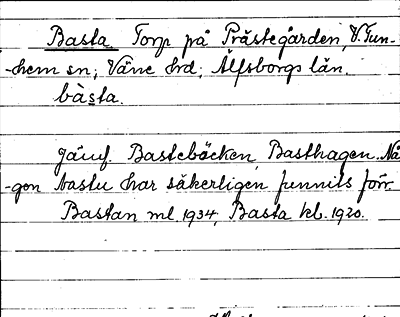 Basta Torp på Prästegården, V. Tun-
-hem sn; Väne hrd; Älfsborgs län.
bàsta.
Jämf. Bastebäcken, Basthagen. Nå
-gon bastu har säkerligen funnits förr.
Bastan ml. 1934, Basta kb. 1920.